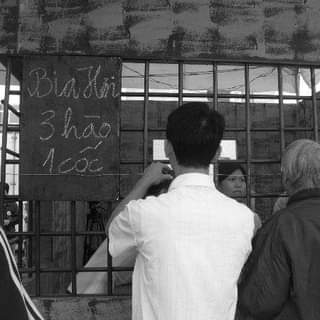 Bia Hơi
3 hào
1 cốc